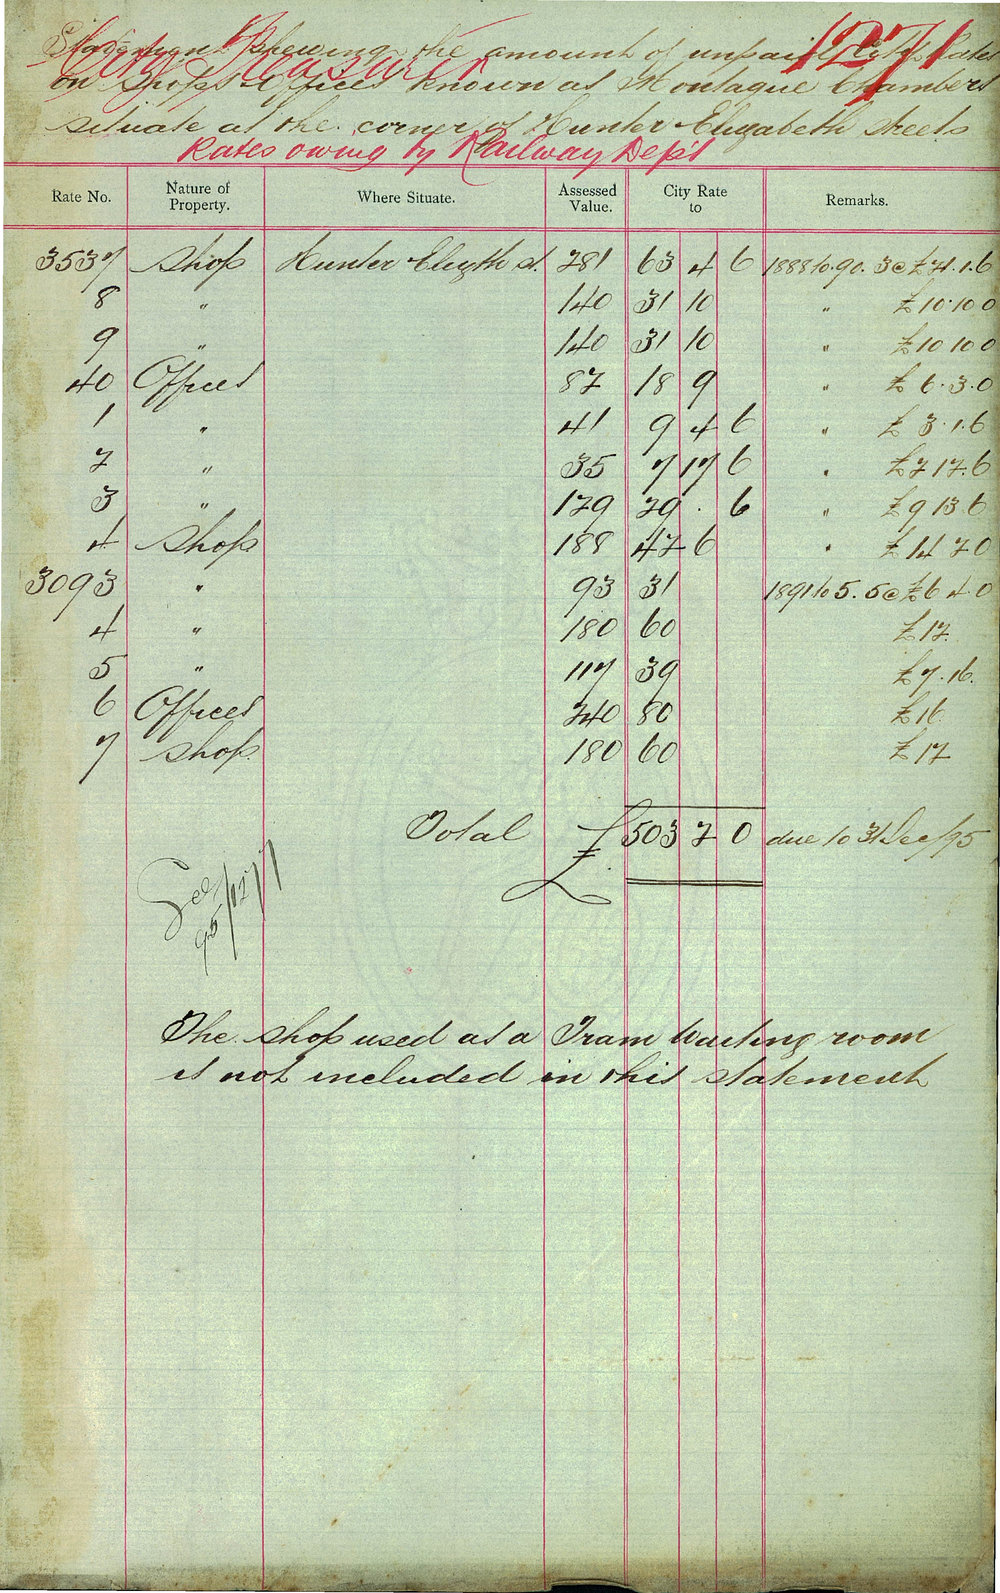 Statement shewing the amount of unpaid City Rates
on Shops & Offices known as Montague Chambers
situate at the corner of Hunter & Elizabeth Streets
City Treasurer
1271
Rates owing by Railway Dept
Rate No. Nature of Property. Where Situate. Assessed Value. City Rate to Remarks.
3537 Shop Hunter & Elizth st. 281 63 4 6 1888 to 90. 3 @ £21.1.6
8 " 140 31 10 " £10.10 0
9 " 140 31 10 " £10 10 0
40 Offices 82 18 9 " £6.3.0
1 " 41 9 4 6 " £3.1.6
2 " 35 7 17 6 " £2 12.6
3 " 129 29 . 6 " £9 13 6
4 Shop 188 42 6 " £14 2 0
3093 " 93 31 1891 to 5. 5 @ £6 4 0
4 " 180 60 £12.
5 " 117 39 £7.16.
6 Offices 240 80 £16.
7 Shop. 180 60 £12
Total £ 503 2 0 due to 31 Dec/95
See
95/1271
The shop used as a Tram Waiting room
is not included in this statement